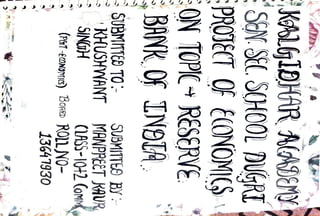 KALGIDHAR ACADEMY
SEN. SEC. SCHOOL DUGRI
PROJECT OF ECONOMICS
ON TOPIC → RESERVE
BANK OF INDIA.
SUBMITTED TO :-
KHUSHWANT
SINGH
(PGT-ECONOMICS)
SUBMITTED BY :-
MANPREET KAUR
CLASS-10+2 COMM.
BOARD ROLL NO-
13647930